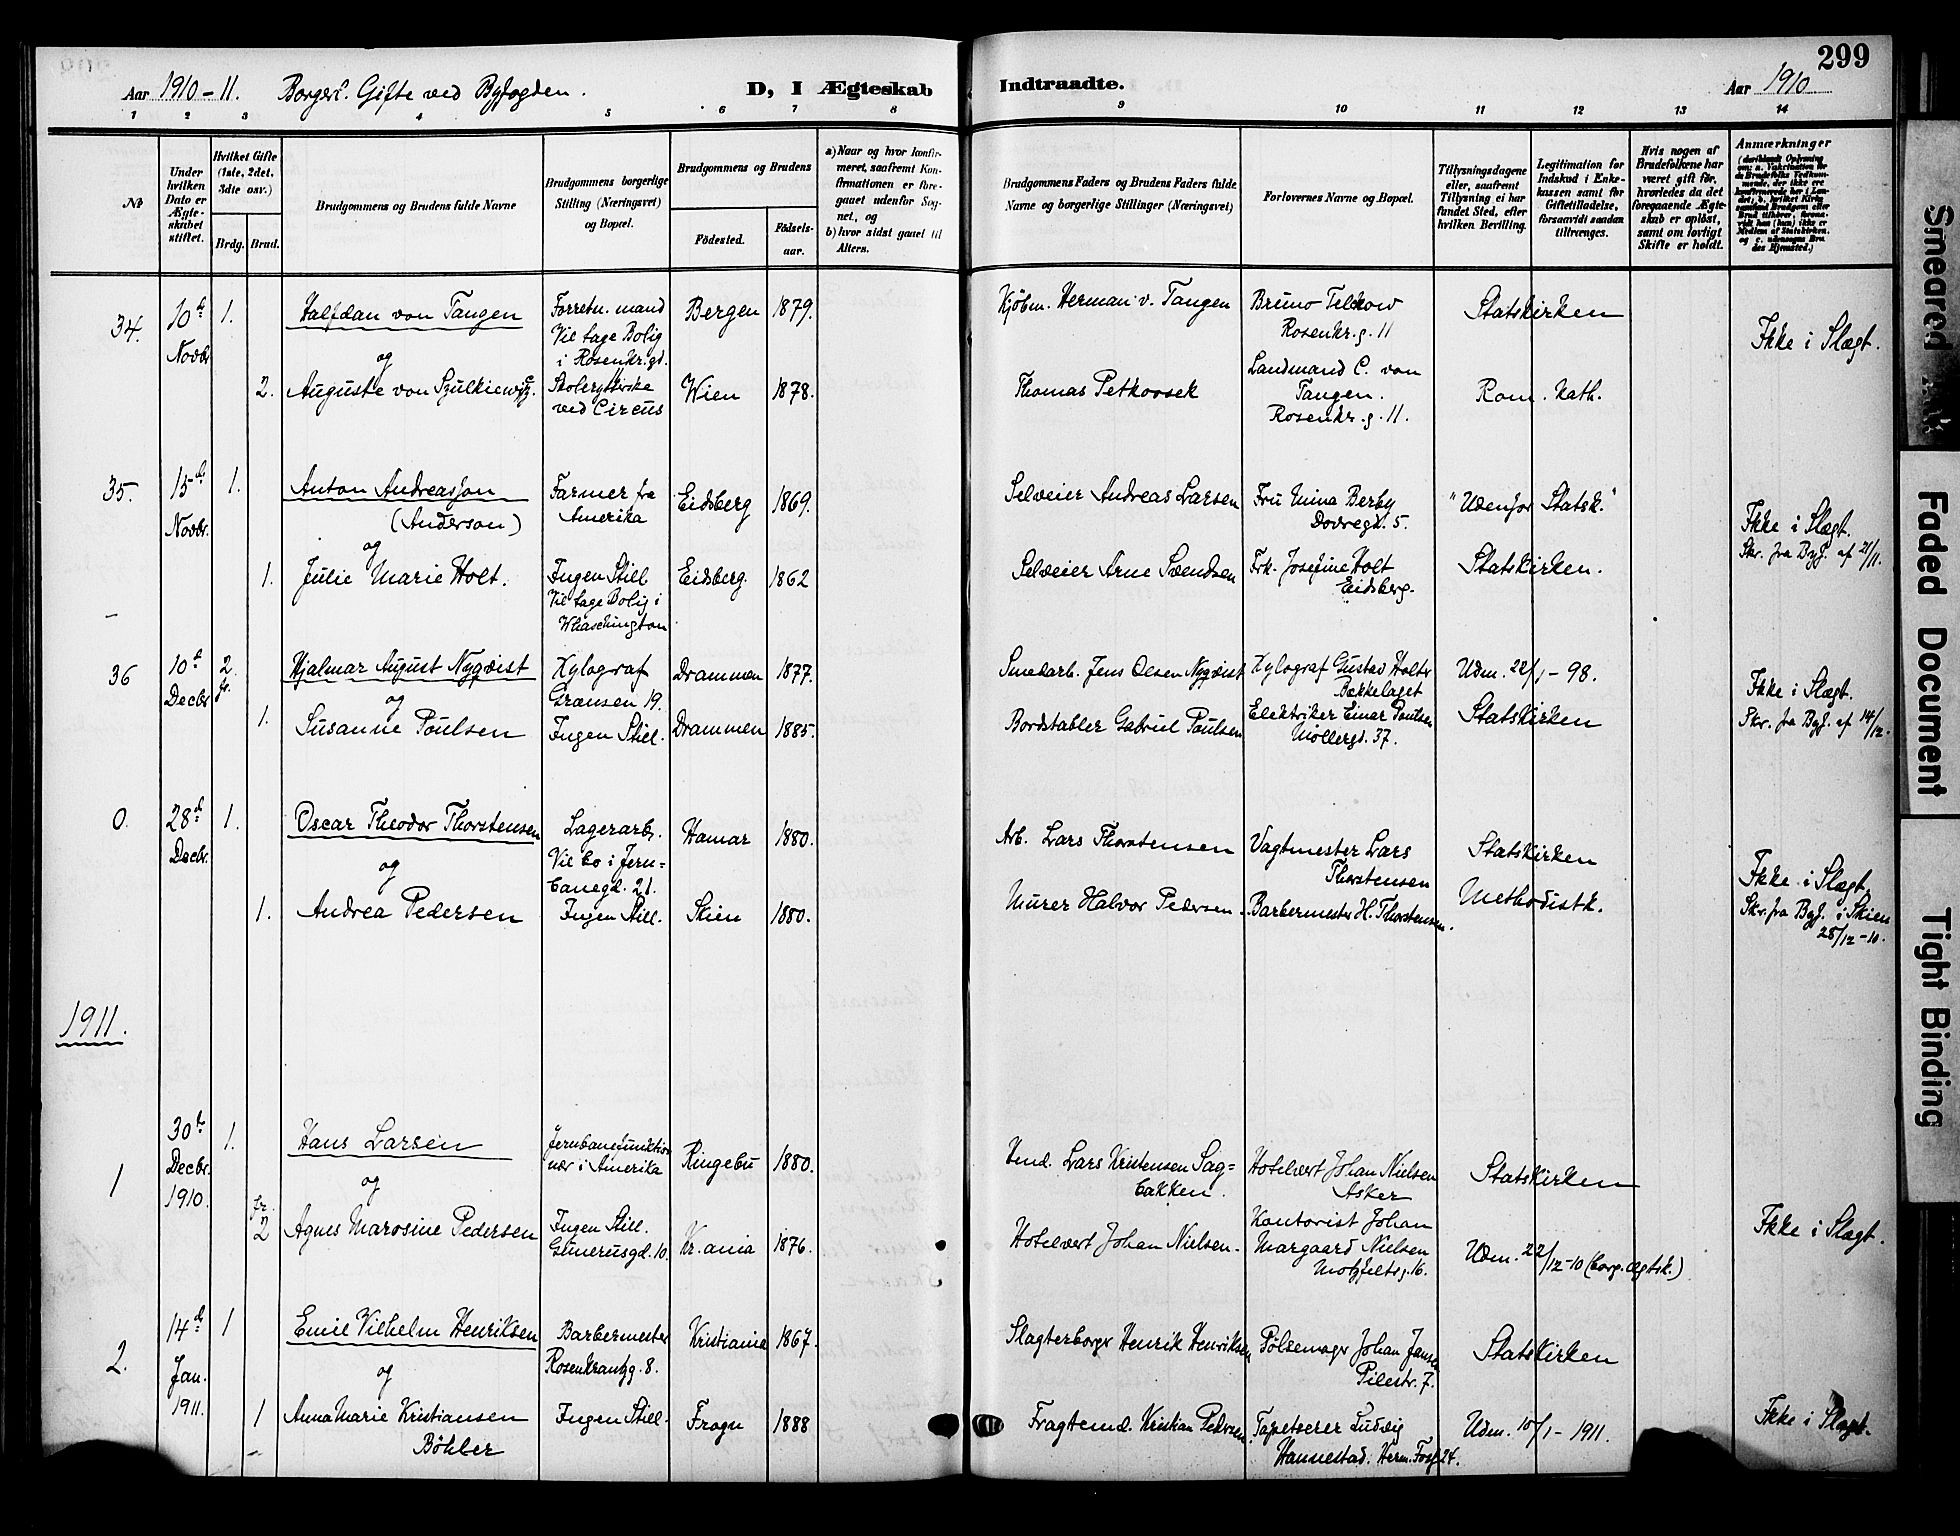 299
Aar 1910-11. Borgerl. Gifte ved Byfogden. D, I Ægteskab Indtraadte. Aar 1910
1 2 3 4 5 6 7 8 9 10 11 12 13 14
No
Under hvilken Dato er Ægteskabet stiftet.
Hvilket Gifte (1ste, 2det, 3dte osv.)
Brdg. Brud.
Brudgommens og Brudens fulde Navne
Brudgommens borgerlige Stilling (Næringsvei) og Bopæl.
Brudgommens og Brudens
Fødested. Fødselsaar.
a) Naar og hvor konfirmeret, saafremt Konfirmationen er foregaaet udenfor Sognet, og
b) hvor sidst gaaet til Alters.
Brudgommens Faders og Brudens Faders fulde Navne og borgerlige Stillinger (Næringsvei)
Forlovernes Navne og Bopæl.
Tillysningsdagene eller, saafremt Tillysning ei har fundet Sted, efter hvilken Bevilling.
Legitimation for Indskud i Enkekassen samt for Giftetilladelse, forsaavidt saadan tiltrænges.
Hvis nogen af Brudefolkene har været gift før, hvorledes da det foregaaende Ægteskab er opløst, samt om lovligt Skifte er holdt.
Anmærkninger
34. 10de Novbr 1. Halfdan von Tangen Forretn. mand Vil tage Bolig i Rosenkr.gd. Bergen 1879. Kjøbm. Herman v. Tangen Bruno Telkow Rosenkr. g. 11 Statskirken Ikke i Slægt.
og
2. Auguste von Szulkiewicz. Skolerytterske ved Circus Wien 1878. Thomas Petkovsek Landmand C. von Tangen. Rosenkr. g. 11. Rom. kath.
35. 15de Novbr. 1. Anton Andreassen (Anderson) Farmer fra Amerika Eidsberg 1869. Selveier Andreas Larsen Fru Mina Berby Dovregt. 5. "Udenfor Statsk." Ikke i Slægt.
og Skr. fra Byf. af 21/11.
1. Julie Marie Holt. Ingen Still Vil tage Bolig i Whaschington Eidsberg. 1862 Selveier Arne Svendsen Frk. Josefine Holt Eidsberg. Statskirken.
36 10de Decbr 2. fr. Hjalmar August Nyqvist Xylograf Grænsen 19. Drammen 1877. Smedarb. Jens Olsen Nyqvist Xylograf Gustav Holter Bækkelaget Udm. 22/1-98. Ikke i Slægt.
og Skr. fra Byf. af 14/12.
1. Susanne Poulsen Ingen Still. Drammen 1885. Bordstabler Gabriel Poulsen Elektriker Einar Poulsen Møllergd. 37. Statskirken
0. 28de Decbr. 1. Oscar Theodor Thorstensen Lagerarb. Vil bo i Jernbanegd. 21. Hamar 1880. Arb. Lars Thorstensen Vagtmester Lars Thorstensen Statskirken Ikke i Slægt.
og Skr. fra Byf. i Skien 28/12-10.
1. Andrea Pedersen Ingen Still. Skien 1880. Murer Halvor Pedersen. Barbermester H. Thorstensen. Methodistk.
1911.
1 30te Decbr. 1910. 1. Hans Larsen Jernbanefunktionær i Amerika Ringebu 1880. Gmd. Lars Kristensen Sagbakken. Hotelvert Johan Nielsen Asker Statskirken
og
fr. 2 Agnes Marosine Pedersen Ingen Still. Gunerusgd. 10. Kr.ania 1876. Hotelvert Johan Nielsen. Kontorist Johan Margaard Nielsen Motzfeltsg. 16. Udm. 22/12-10 (borg. ægtsk.) Ikke i Slægt.
2. 14de Jan. 1911. 1 Emil Vilhelm Henriksen Barbermester Rosenkrantzg. 8. Kristiania 1867. Slagterborger Henrik Henriksen Pølsemager Johan Jansen Pilestr. 7. Statskirken
og
1 Anna Marie Kristiansen Böhler Ingen Still. Frogn 1888 Fragtemd. Kristian Pedersen. Tapetserer Ludvig Hannestad. Herm. Fossg. 24. Udm. 10/1-1911. Ikke i Slægt.
Smeared Ink
Faded Document
Tight Binding